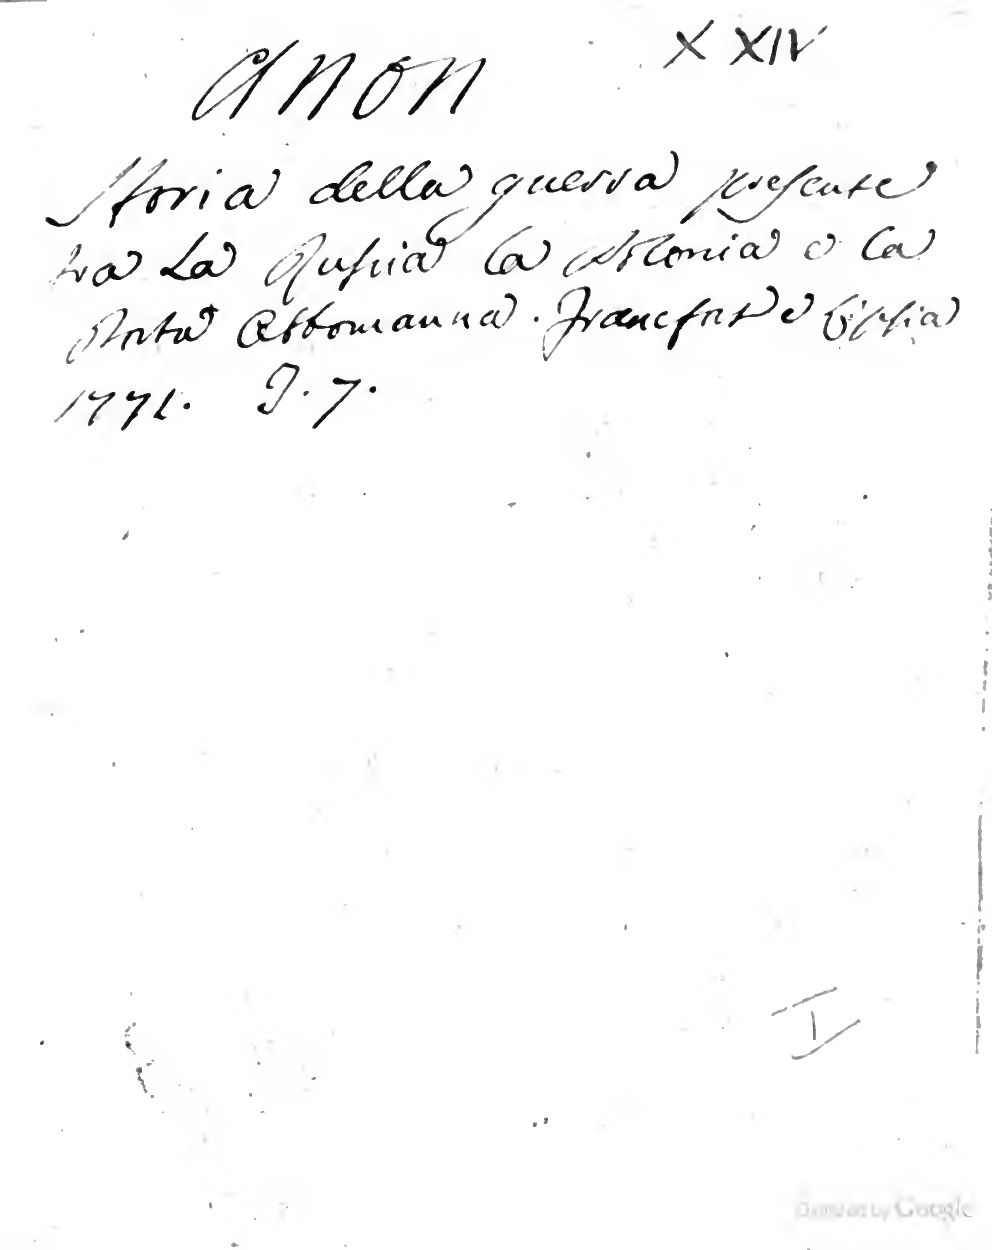 XXIV
Anon
Storia della guerra presente
tra La Russia la Polonia e la
Porta Ottomanna. Francfort e Lipsia
1771. I. 7.
I
Digitized by Google